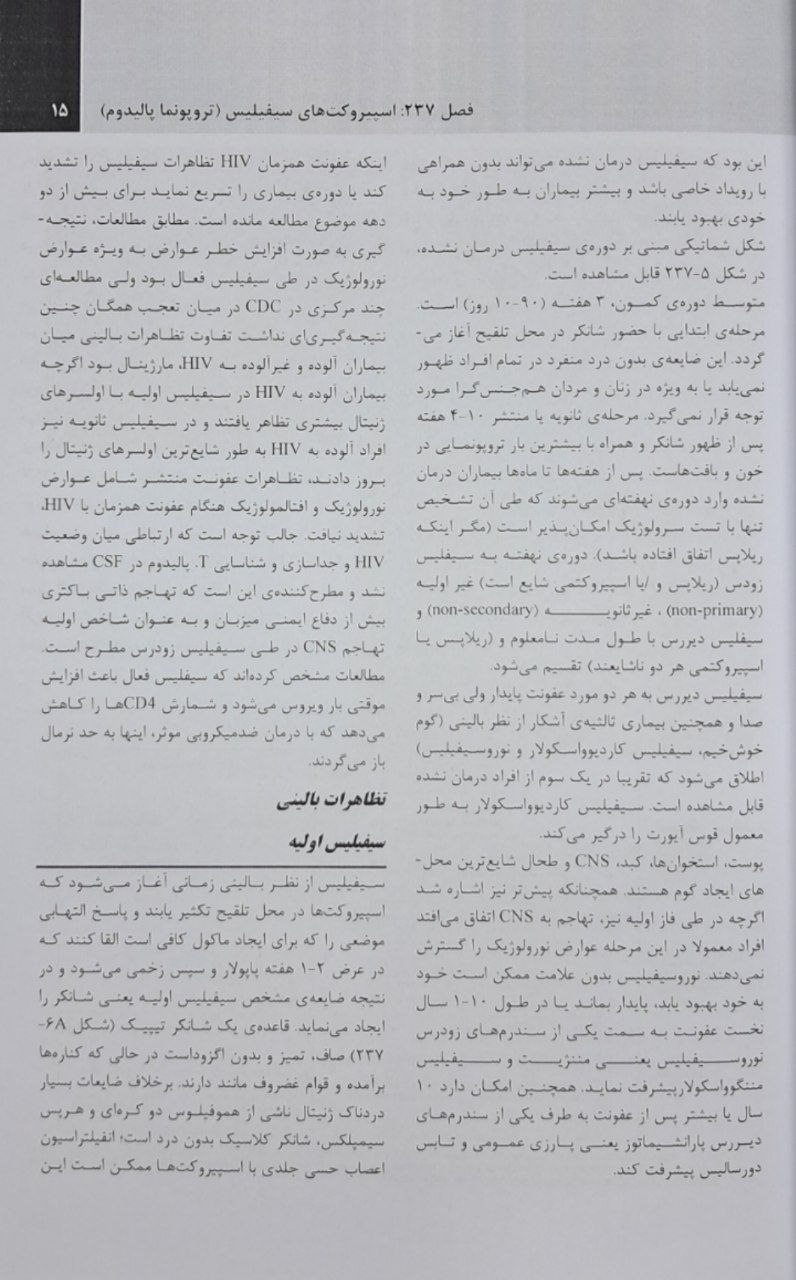 فصل ۲۳۷: اسپیروکت‌های سیفیلیس (تروپونما پالیدوم) ۱۵
این بود که سیفیلیس درمان نشده می‌تواند بدون همراهی
با رویداد خاصی باشد و بیشتر بیماران به طور خود به
خودی بهبود یابند.
شکل شماتیکی مبنی بر دوره‌ی سیفیلیس درمان نشده،
در شکل ۵-۲۳۷ قابل مشاهده است.
متوسط دوره‌ی کمون، ۳ هفته (۹۰-۱۰ روز) است.
مرحله‌ی ابتدایی با حضور شانکر در محل تلقیح آغاز می-
گردد. این ضایعه‌ی بدون درد منفرد در تمام افراد ظهور
نمی‌یابد یا به ویژه در زنان و مردان هم‌جنس‌گرا مورد
توجه قرار نمی‌گیرد. مرحله‌ی ثانویه یا منتشر ۱۰-۴ هفته
پس از ظهور شانکر و همراه با بیشترین بار تروپونمایی در
خون و بافت‌هاست. پس از هفته‌ها تا ماه‌ها بیماران درمان
نشده وارد دوره‌ی نهفته‌ای می‌شوند که طی آن تشخیص
تنها با تست سرولوژیک امکان‌پذیر است (مگر اینکه
ریلاپس اتفاق افتاده باشد). دوره‌ی نهفته به سیفلیس
زودس (ریلاپس و /یا اسپیروکتمی شایع است) غیر اولیه
(non-primary) ، غیرثانویه (non-secondary) و
سیفلیس دیررس با طول مدت نامعلوم و (ریلاپس یا
اسپیروکتمی هر دو ناشایعند) تقسیم می‌شود.
سیفیلیس دیررس به هر دو مورد عفونت پایدار ولی بی‌سر و
صدا و همچنین بیماری ثالثیه‌ی آشکار از نظر بالینی (گوم
خوش‌خیم، سیفیلیس کاردیوواسکولار و نوروسیفیلیس)
اطلاق می‌شود که تقریبا در یک سوم از افراد درمان نشده
قابل مشاهده است. سیفیلیس کاردیوواسکولار به طور
معمول قوس آیورت را درگیر می‌کند.
پوست، استخوان‌ها، کبد، CNS و طحال شایع‌ترین محل-
های ایجاد گوم هستند. همچنانکه پیش‌تر نیز اشاره شد
اگرچه در طی فاز اولیه نیز، تهاجم به CNS اتفاق می‌افتد
افراد معمولا در این مرحله عوارض نورولوژیک را گسترش
نمی‌دهند. نوروسیفیلیس بدون علامت ممکن است خود
به خود بهبود یابد، پایدار بماند یا در طول ۱۰-۱ سال
نخست عفونت به سمت یکی از سندرم‌های زودرس
نوروسیفیلیس یعنی مننژیت و سیفیلیس
مننگوواسکولارپیشرفت نماید. همچنین امکان دارد ۱۰
سال یا بیشتر پس از عفونت به طرف یکی از سندرم‌های
دیررس پارانشیماتوز یعنی پارزی عمومی و تابس
دورسالیس پیشرفت کند.
اینکه عفونت همزمان HIV تظاهرات سیفیلیس را تشدید
کند یا دوره‌ی بیماری را تسریع نماید برای بیش از دو
دهه موضوع مطالعه مانده است. مطابق مطالعات، نتیجه-
گیری به صورت افزایش خطر عوارض به ویژه عوارض
نورولوژیک در طی سیفیلیس فعال بود ولی مطالعه‌ای
چند مرکزی در CDC در میان تعجب همگان چنین
نتیجه‌گیری‌ای نداشت تفاوت تظاهرات بالینی میان
بیماران آلوده و غیرآلوده به HIV، مارژینال بود اگرچه
بیماران آلوده به HIV در سیفیلیس اولیه با اولسرهای
ژنیتال بیشتری تظاهر یافتند و در سیفیلیس ثانویه نیز
افراد آلوده به HIV به طور شایع‌ترین اولسرهای ژنیتال را
بروز دادند، تظاهرات عفونت منتشر شامل عوارض
نورولوژیک و افتالمولوژیک هنگام عفونت همزمان با HIV،
تشدید نیافت. جالب توجه است که ارتباطی میان وضعیت
HIV و جداسازی و شناسایی T. پالیدوم در CSF مشاهده
نشد و مطرح‌کننده‌ی این است که تهاجم ذاتی باکتری
بیش از دفاع ایمنی میزبان و به عنوان شاخص اولیه
تهاجم CNS در طی سیفیلیس زودرس مطرح است.
مطالعات مشخص کرده‌اند که سیفلیس فعال باعث افزایش
موقتی بار ویروس می‌شود و شمارش CD4ها را کاهش
می‌دهد که با درمان ضدمیکروبی موثر، اینها به حد نرمال
باز می‌گردند.
تظاهرات بالینی
سیفیلیس اولیه
سیفیلیس از نظر بالینی زمانی آغاز می‌شود که
اسپیروکت‌ها در محل تلقیح تکثیر یابند و پاسخ التهابی
موضعی را که برای ایجاد ماکول کافی است القا کنند که
در عرض ۲-۱ هفته پاپولار و سپس زخمی می‌شود و در
نتیجه ضایعه‌ی مشخص سیفیلیس اولیه یعنی شانکر را
ایجاد می‌نماید. قاعده‌ی یک شانکر تیپیک (شکل ۶A-
۲۳۷) صاف، تمیز و بدون اگزوداست در حالی که کناره‌ها
برآمده و قوام غضروف مانند دارند. برخلاف ضایعات بسیار
دردناک ژنیتال ناشی از هموفیلوس دو کره‌ای و هرپس
سیمپلکس، شانکر کلاسیک بدون درد است؛ انفیلتراسیون
اعصاب حسی جلدی با اسپیروکت‌ها ممکن است این